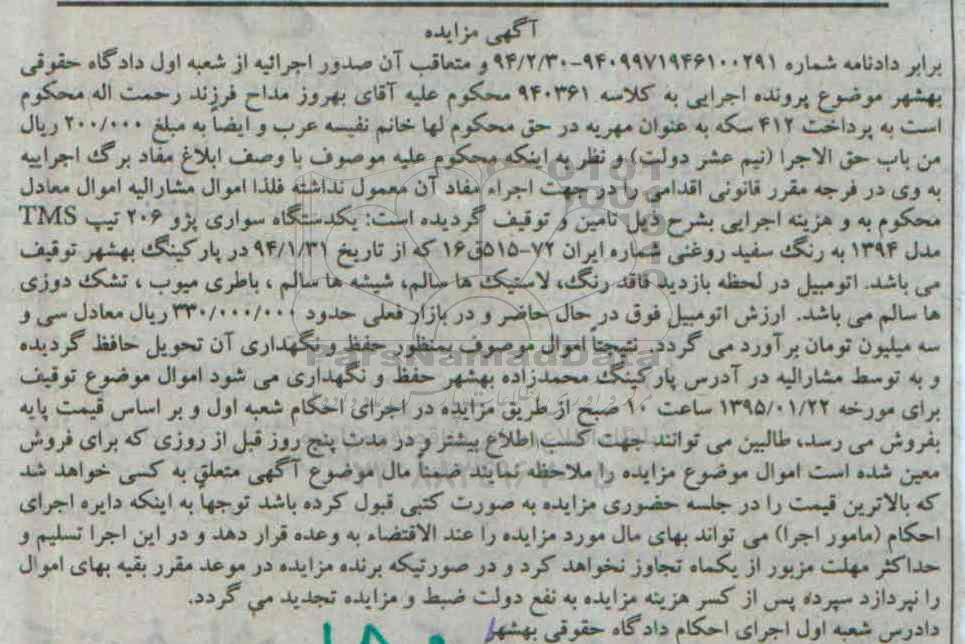 آگهی مزایده
برابر دادنامه شماره ۹۴۰۹۹۷۱۹۴۶۱۰۰۲۹۱-۹۴/۲/۳۰ و متعاقب آن صدور اجرائیه از شعبه اول دادگاه حقوقی
بهشهر موضوع پرونده اجرایی به کلاسه ۹۴۰۳۶۱ محکوم علیه آقای بهروز مداح فرزند رحمت اله محکوم
است به پرداخت ۴۱۲ سکه به عنوان مهریه در حق محکوم لها خانم نفیسه عرب و ایضاً به مبلغ ۲۰۰/۰۰۰ ریال
من باب حق الاجرا (نیم عشر دولت) و نظر به اینکه محکوم علیه موصوف با وصف ابلاغ مفاد برگ اجراییه
به وی در فرجه مقرر قانونی اقدامی را در جهت اجراء مفاد آن معمول نداشته فلذا اموال مشارالیه اموال معادل
محکوم به و هزینه اجرایی بشرح ذیل تامین و توقیف گردیده است: یکدستگاه سواری پژو ۲۰۶ تیپ TMS
مدل ۱۳۹۴ به رنگ سفید روغنی شماره ایران ۷۲-۵۱۵ق۱۶ که از تاریخ ۹۴/۱/۳۱ در پارکینگ بهشهر توقیف
می باشد. اتومبیل در لحظه بازدید فاقد رنگ، لاستیک ها سالم، شیشه ها سالم ، باطری میوب ، تشک دوزی
ها سالم می باشد. ارزش اتومبیل فوق در حال حاضر و در بازار فعلی حدود ۳۳۰/۰۰۰/۰۰۰ ریال معادل سی و
سه میلیون تومان برآورد می گردد. نتیجتاً اموال موصوف بمنظور حفظ و نگهداری آن تحویل حافظ گردیده
و به توسط مشارالیه در آدرس پارکینگ محمدزاده بهشهر حفظ و نگهداری می شود اموال موضوع توقیف
برای مورخه ۱۳۹۵/۰۱/۲۲ ساعت ۱۰ صبح از طریق مزایده در اجرای احکام شعبه اول و بر اساس قیمت پایه
بفروش می رسد، طالبین می توانند جهت کسب اطلاع بیشتر و در مدت پنج روز قبل از روزی که برای فروش
معین شده است اموال موضوع مزایده را ملاحظه نمایند ضمناً مال موضوع آگهی متعلق به کسی خواهد شد
که بالاترین قیمت را در جلسه حضوری مزایده به صورت کتبی قبول کرده باشد توجها به اینکه دایره اجرای
احکام (مامور اجرا) می تواند بهای مال مورد مزایده را عند الاقتضاء به وعده قرار دهد و در این اجرا تسلیم و
حداکثر مهلت مزبور از یکماه تجاوز نخواهد کرد و در صورتیکه برنده مزایده در موعد مقرر بقیه بهای اموال
را نپردازد سپرده پس از کسر هزینه مزایده به نفع دولت ضبط و مزایده تجدید می گردد.
دادرس شعبه اول اجرای احکام دادگاه حقوقی بهشهر
ParsNamadData